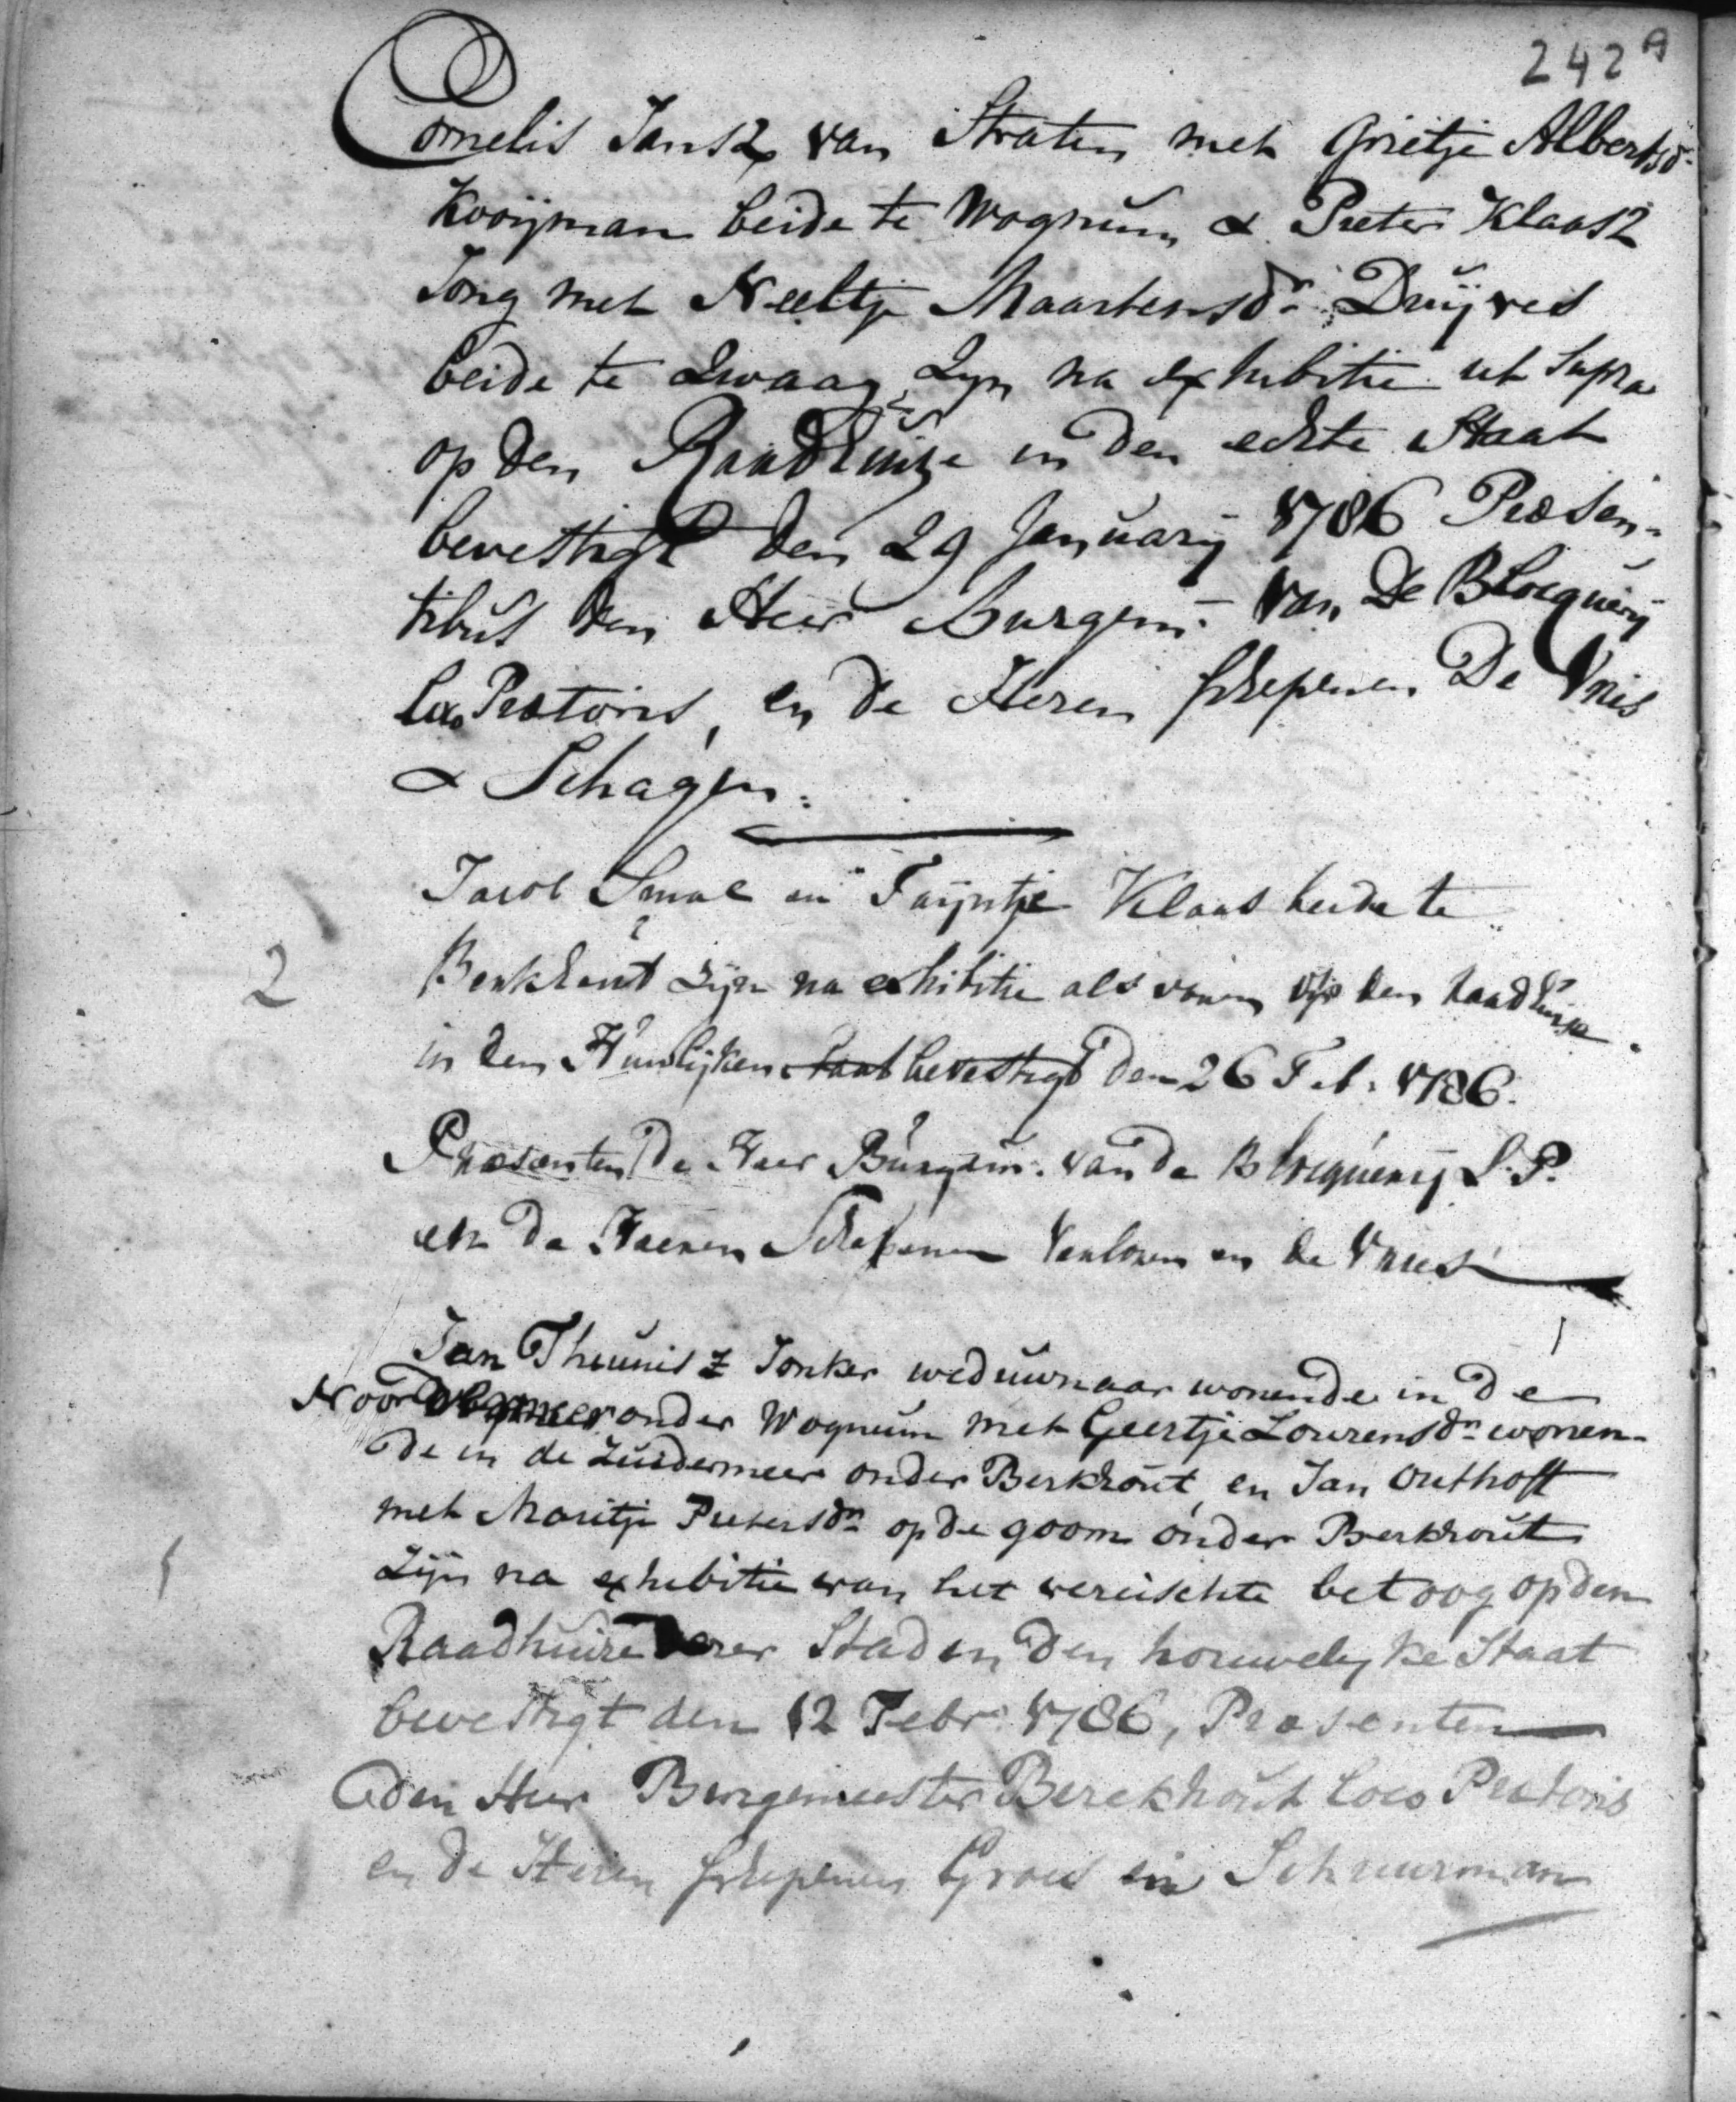 242 A
Cornelis Jansz van Straten met Grietje Albertsdr
Kooijman beide te Wognum & Pieter Klaasz
Jong met Neeltje Maartensdr Duijves
beide te Zwaag Zyn na exhibitie ut Supra
op den Raadhuize in den echte Staat
bevestigt den 29 Januarij 1786 Præsen-
tibus den Heer Burgem: Van De Blocquerij
Loco Prætoris, en de Heren Schepenen De Vries
& Schagen.
Jacob Smal en Trijntje Klaas beide te
2 Berkhout zijn na exhibitie als voren op den raadhuise
in den Huwlijken staat bevestigt den 26 Feb: 1786.
Præsenten De Heer Burgem: van de Blocquerij L: P.
en De Heeren Schepenen Verloren en de Vries
Jan Theunisz Jonker weduwnaar wonende in de
Noordermeer onder Wognum met Geertje Lourensdr wonen-
de in de Zuidermeer onder Berkhout, en Jan Outhoff
met Maritje Pietersdr op de goorn onder Berkhout
1 Zijn na exhibitie van het vereischte betoog op den
Raadhuise dezer Stad in den houwelyke Staat
bevestigt den 12 Febr: 1786, Præsenten
den Heer Burgemeester Berckhout loco Prætoris
en de Heeren Schepenen Groes en Schuurman